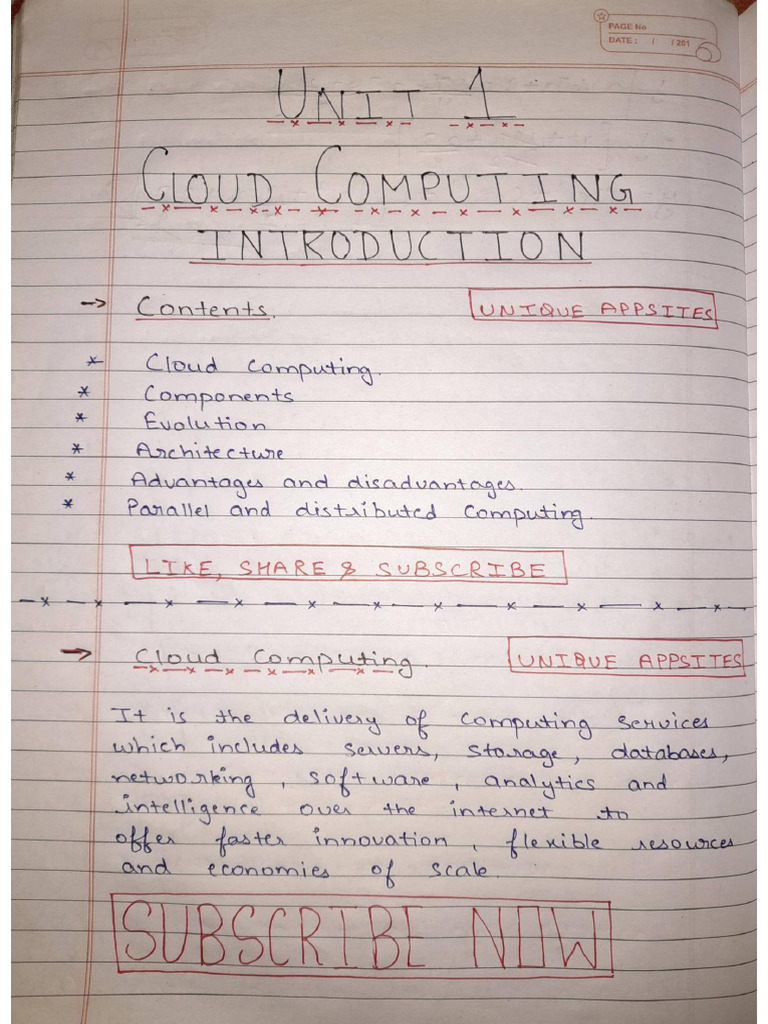 PAGE No
DATE : / / 201
UNIT 1
CLOUD COMPUTING
INTRODUCTION
→ Contents.
UNIQUE APPSITES
* Cloud Computing.
* Components
* Evolution
* Architecture
* Advantages and disadvantages.
* Parallel and distributed Computing.
LIKE, SHARE & SUBSCRIBE
→ Cloud Computing.
UNIQUE APPSITES
It is the delivery of computing services
which includes servers, storage, databases,
networking, software, analytics and
intelligence over the internet to
offer faster innovation, flexible resources
and economies of scale.
SUBSCRIBE NOW